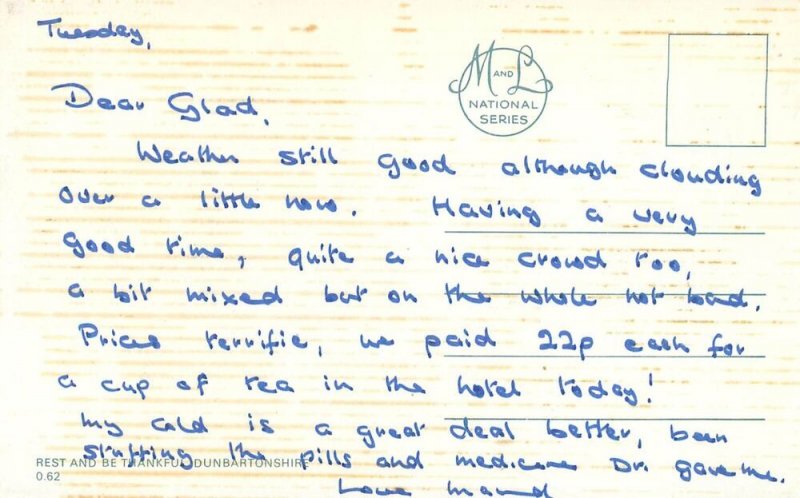 Tuesday,
M AND L
NATIONAL
SERIES
Dear Glad,
Weather still good although clouding
over a little now. Having a very
good time, quite a nice crowd too,
a bit mixed but on the whole not bad.
Prices terrific, we paid 22p each for
a cup of tea in the hotel today!
My cold is a great deal better, been
stuffing the pills and medicine Dr. gave me.
REST AND BE THANKFUL, DUNBARTONSHIRE
0.62
Love Maud